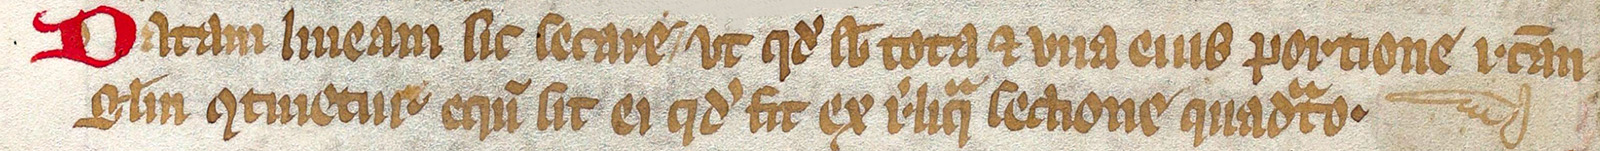 Datam lineam sic secare ut qd' sb tota & vna eius portione rectan
g'lm qtinetur equū sit ei qd' fit ex reliqa sectione quadrato.